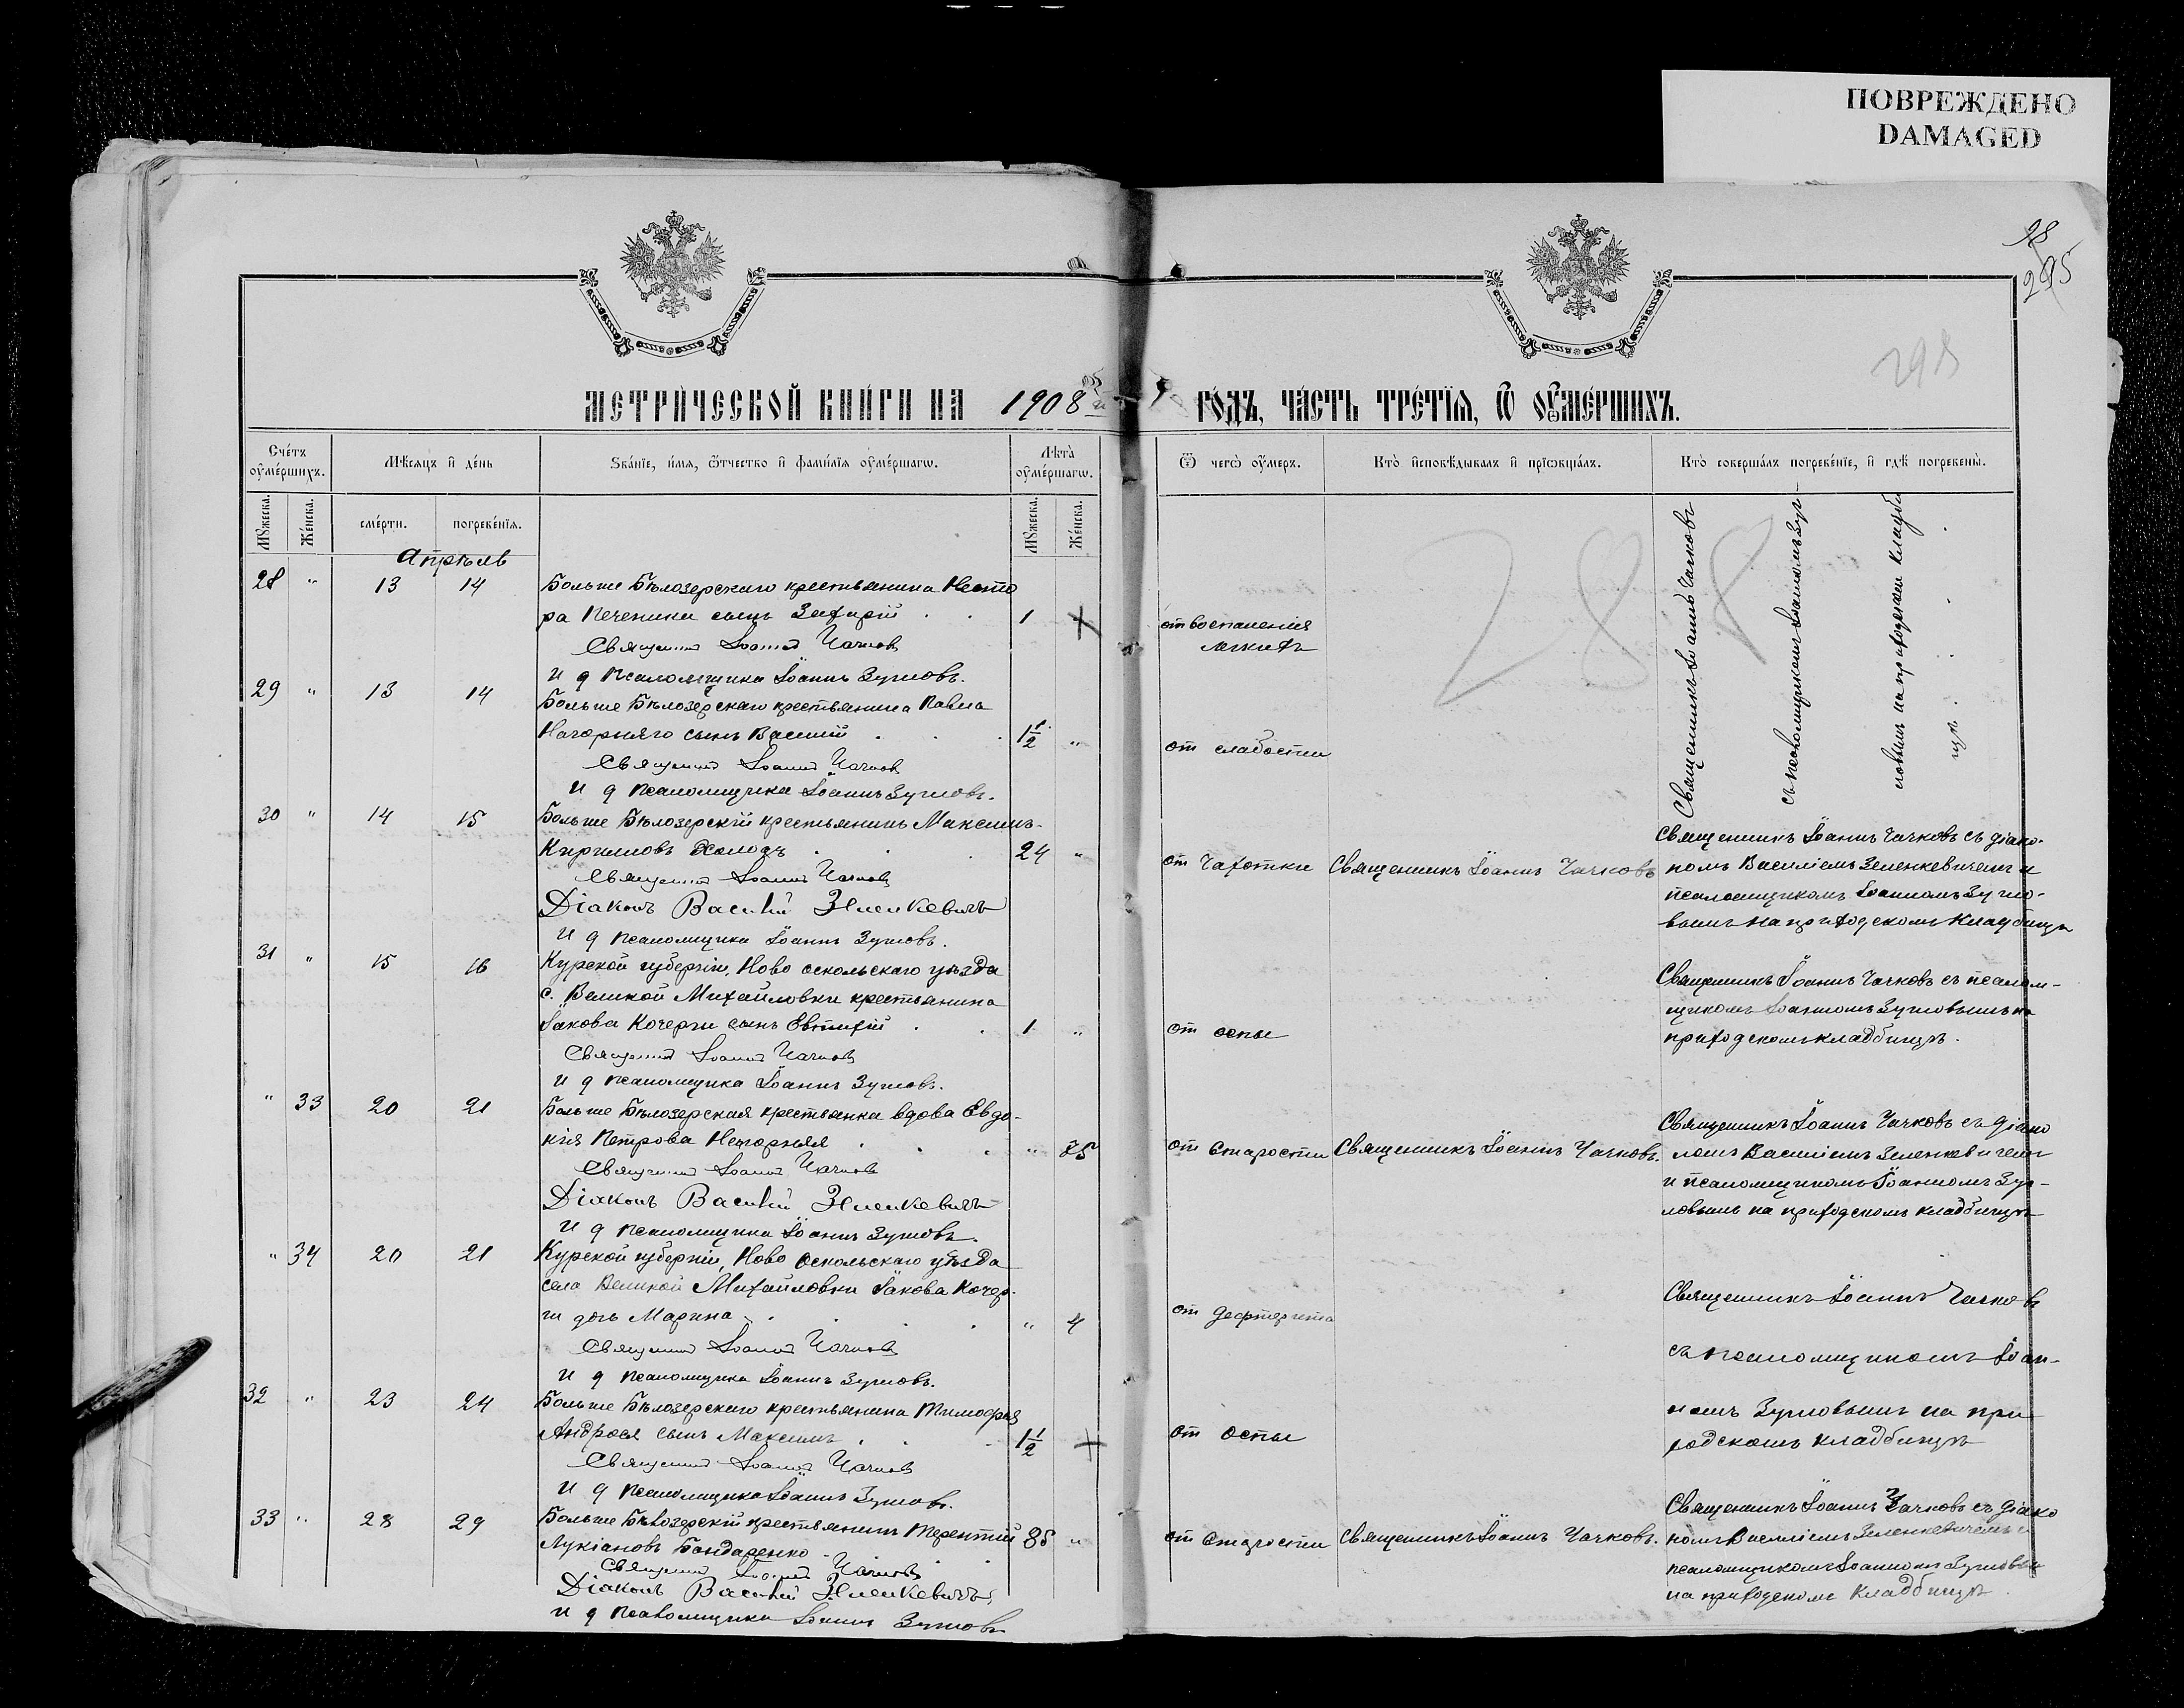 ПОВРЕЖДЕНО
DAMAGED
28
295
МЕТРИ́ЧЕСКОЙ КНИ́ГИ НА 1908 й ГО́ДЪ, ЧА́СТЬ ТРЕ́ТЇѦ, Ѡ ОУМЕ́РШИХЪ.
Сче́тъ оуме́ршихъ.
Мѣсяцъ и де́нь
Зва́нїе, и́мя, ѻ́тчество и фами́лїя оуме́ршагѡ.
Лѣта̀ оуме́ршагѡ.
Ѿ чегѡ̀ оу́меръ.
Кто̀ исповѣ́дывалъ и прїѡбща́лъ.
Кто̀ соверша́лъ погребе́нїе, и гдѣ̀ погребены̀.
Мꙋжеска. Же́нска. сме́рти. погребе́нїя. Мꙋжеска. Же́нска.
Апрѣль
28 " 13 14 Больше Бѣлозерскаго крестьянина Несто
ра Печеника сынъ Захарій 1
Священникъ Іоаннъ Чачковъ
И д псаломщика Іоаннъ Зумовъ.
отъ воспаленія
легкихъ
Священникъ Іоаннъ Чачковъ
съ псаломщикомъ Іоанномъ Зум
ловымъ на приходскомъ кладби
щѣ.
29 " 13 14 Больше Бѣлозерскаго крестьянина Павла
Нагорняго сынъ Василій 1 1/2 "
Священникъ Іоаннъ Чачковъ
И д псаломщика Іоаннъ Зумовъ.
от слабости
30 " 14 15 Больше Бѣлозерскій крестьянинъ Максимъ
Кирилловъ Холодъ 24 "
Священникъ Іоаннъ Чачковъ
Діаконъ Василій Зеленкевичъ
И д псаломщика Іоаннъ Зумовъ.
от Чахотки Священникъ Іоаннъ Чачковъ
Священникъ Іоаннъ Чачковъ съ діако-
номъ Василіемъ Зеленкевичемъ и
псаломщикомъ Іоанномъ Зумо-
вымъ на приходскомъ кладбищѣ
31 " 15 16 Курской губерніи, Ново оскольскаго уѣзда
с. Великой Михайловки крестьянина
Іакова Кочерги сынъ Евтихій 1 "
Священникъ Іоаннъ Чачковъ
И д псаломщика Іоаннъ Зумовъ.
от оспы
Священникъ Іоаннъ Чачковъ съ псалом-
щикомъ Іоанномъ Зумовымъ на
приходскомъ кладбищѣ.
" 33 20 21 Больше Бѣлозерская крестьянка вдова Евдо-
кія Петрова Нагорняя " 85
Священникъ Іоаннъ Чачковъ
Діаконъ Василій Зеленкевичъ
И д псаломщика Іоаннъ Зумовъ.
от Старости Священникъ Іоаннъ Чачковъ.
Священникъ Іоаннъ Чачковъ съ діако
номъ Василіемъ Зеленкевичемъ
и псаломщикомъ Іоанномъ Зум-
ловымъ на приходскомъ кладбищѣ
" 34 20 21 Курской губерніи, Ново Оскольскаго уѣзда
села Великой Михайловки Іакова Кочер-
ги дочь Марина " 4
Священникъ Іоаннъ Чачковъ
И д псаломщика Іоаннъ Зумовъ.
от дефтерита
Священникъ Іоаннъ Чачковъ
съ псаломщикомъ Іоан-
номъ Зумовымъ на при
ходскомъ кладбищѣ
32 " 23 24 Больше Бѣлозерскаго крестьянина Тимофея
Андрося сынъ Максимъ 1 1/2
Священникъ Іоаннъ Чачковъ
И д псаломщика Іоаннъ Зумовъ.
от оспы
33 " 28 29 Больше Бѣлозерскій крестьянинъ Терентій
Лукіановъ Бондаренко 85 "
Священникъ Іоаннъ Чачковъ
Діаконъ Василій Зеленкевичъ
И д псаломщика Іоаннъ Зумовъ
от Старости Священникъ Іоаннъ Чачковъ.
Священникъ Іоаннъ Чачковъ съ діако
номъ Василіемъ Зеленкевичемъ и
псаломщикомъ Іоанномъ Зумовым
на приходскомъ кладбищѣ.
288